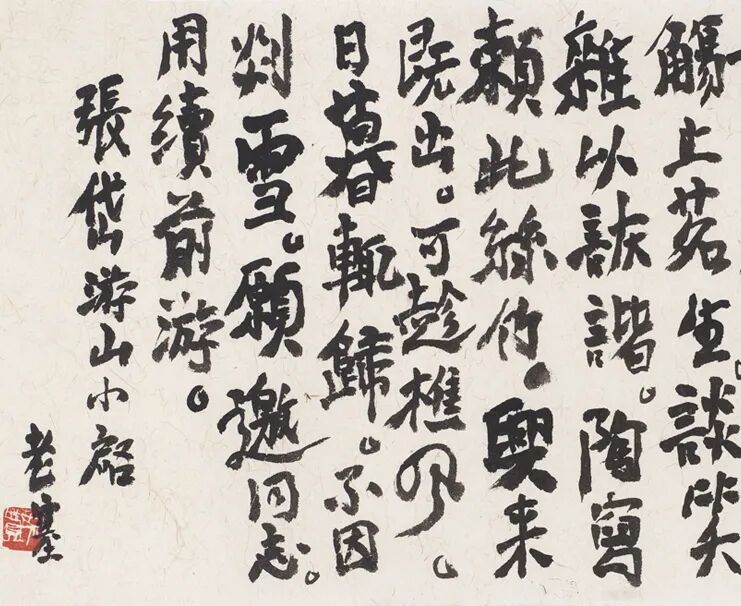 觴止茗生。談笑
雜以詼諧。陶寫
賴此絲竹。興来
既出。可趁樵風。
日暮輒歸。不因
剡雪。願邀同志。
用續前游。
張岱游山小啓
老